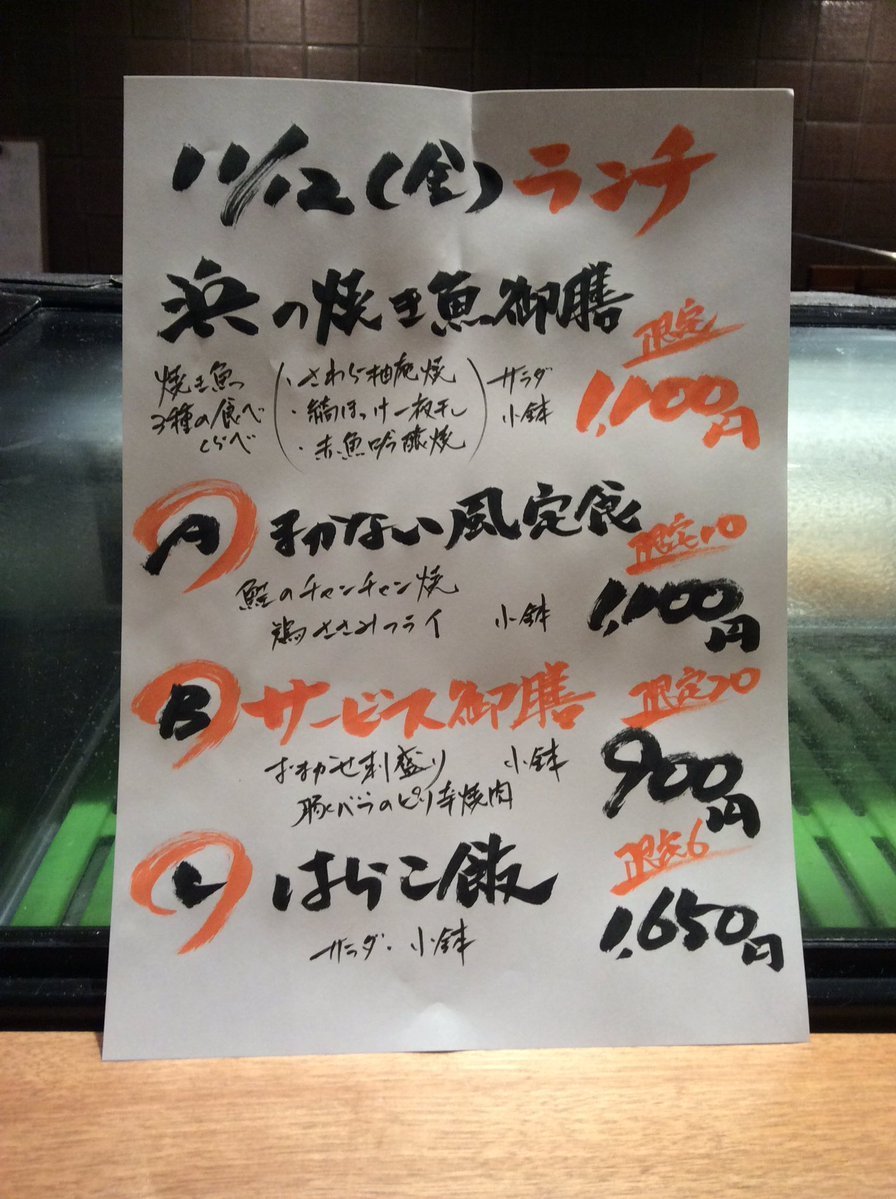 11/12(金)ランチ
浜の焼き魚御膳
限定
焼き魚
3種の食べ
くらべ
・さわら柚庵焼
・縞ほっけ一夜干し
・赤魚吟醸焼
サラダ
小鉢
1,100円
A まかない風定食
限定10
鮭のチャンチャン焼
鶏ささみフライ 小鉢
1,100円
B サービス御膳
限定20
おまかせ刺盛り 小鉢
豚バラのピリ辛焼肉
900円
C はらこ飯
限定6
サラダ・小鉢
1,650円